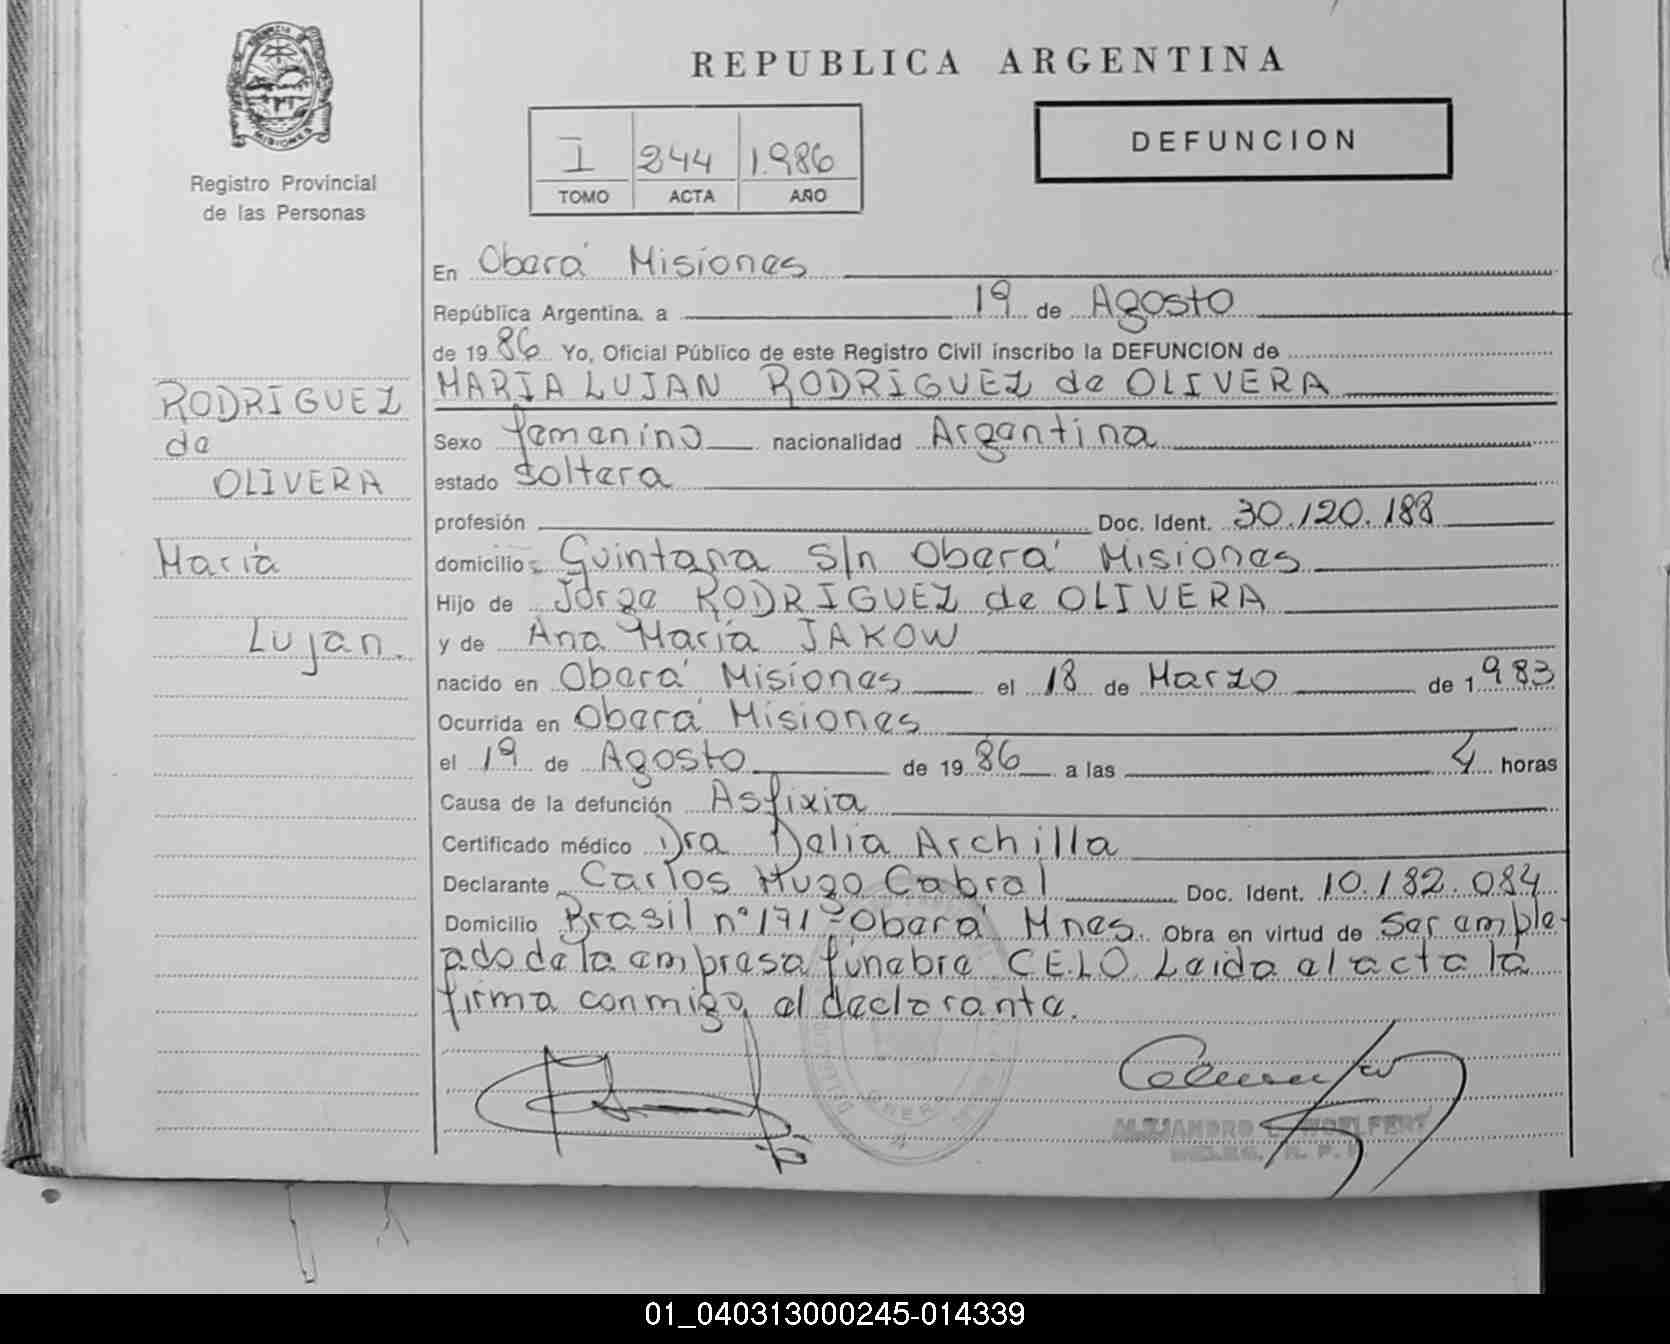 MISIONES
Registro Provincial
de las Personas
REPUBLICA ARGENTINA
I 244 1.986
TOMO ACTA AÑO
DEFUNCION
En Oberá Misiones
República Argentina, a 19 de Agosto
de 1986 Yo, Oficial Público de este Registro Civil inscribo la DEFUNCION de
MARIA LUJAN RODRIGUEZ de OLIVERA
Sexo femenino nacionalidad Argentina
estado soltera
profesión Doc. Ident. 30.120.188
domicilio Quintana S/n Oberá Misiones
Hijo de Jorge RODRIGUEZ de OLIVERA
y de Ana María JAKOW
nacido en Oberá Misiones el 18 de Marzo de 1983
Ocurrida en Oberá Misiones
el 19 de Agosto de 1986 a las 4 horas
Causa de la defunción Asfixia
Certificado médico Dra Delia Archilla
Declarante Carlos Hugo Cabral Doc. Ident. 10.182.084
Domicilio Brasil nº 171 Oberá Mnes. Obra en virtud de Ser emple-
ado de la empresa fúnebre CELO Leida el acta la
firma conmigo el declarante.
RODRIGUEZ
de
OLIVERA
María
Lujan.
ALEJANDRO
01_040313000245-014339